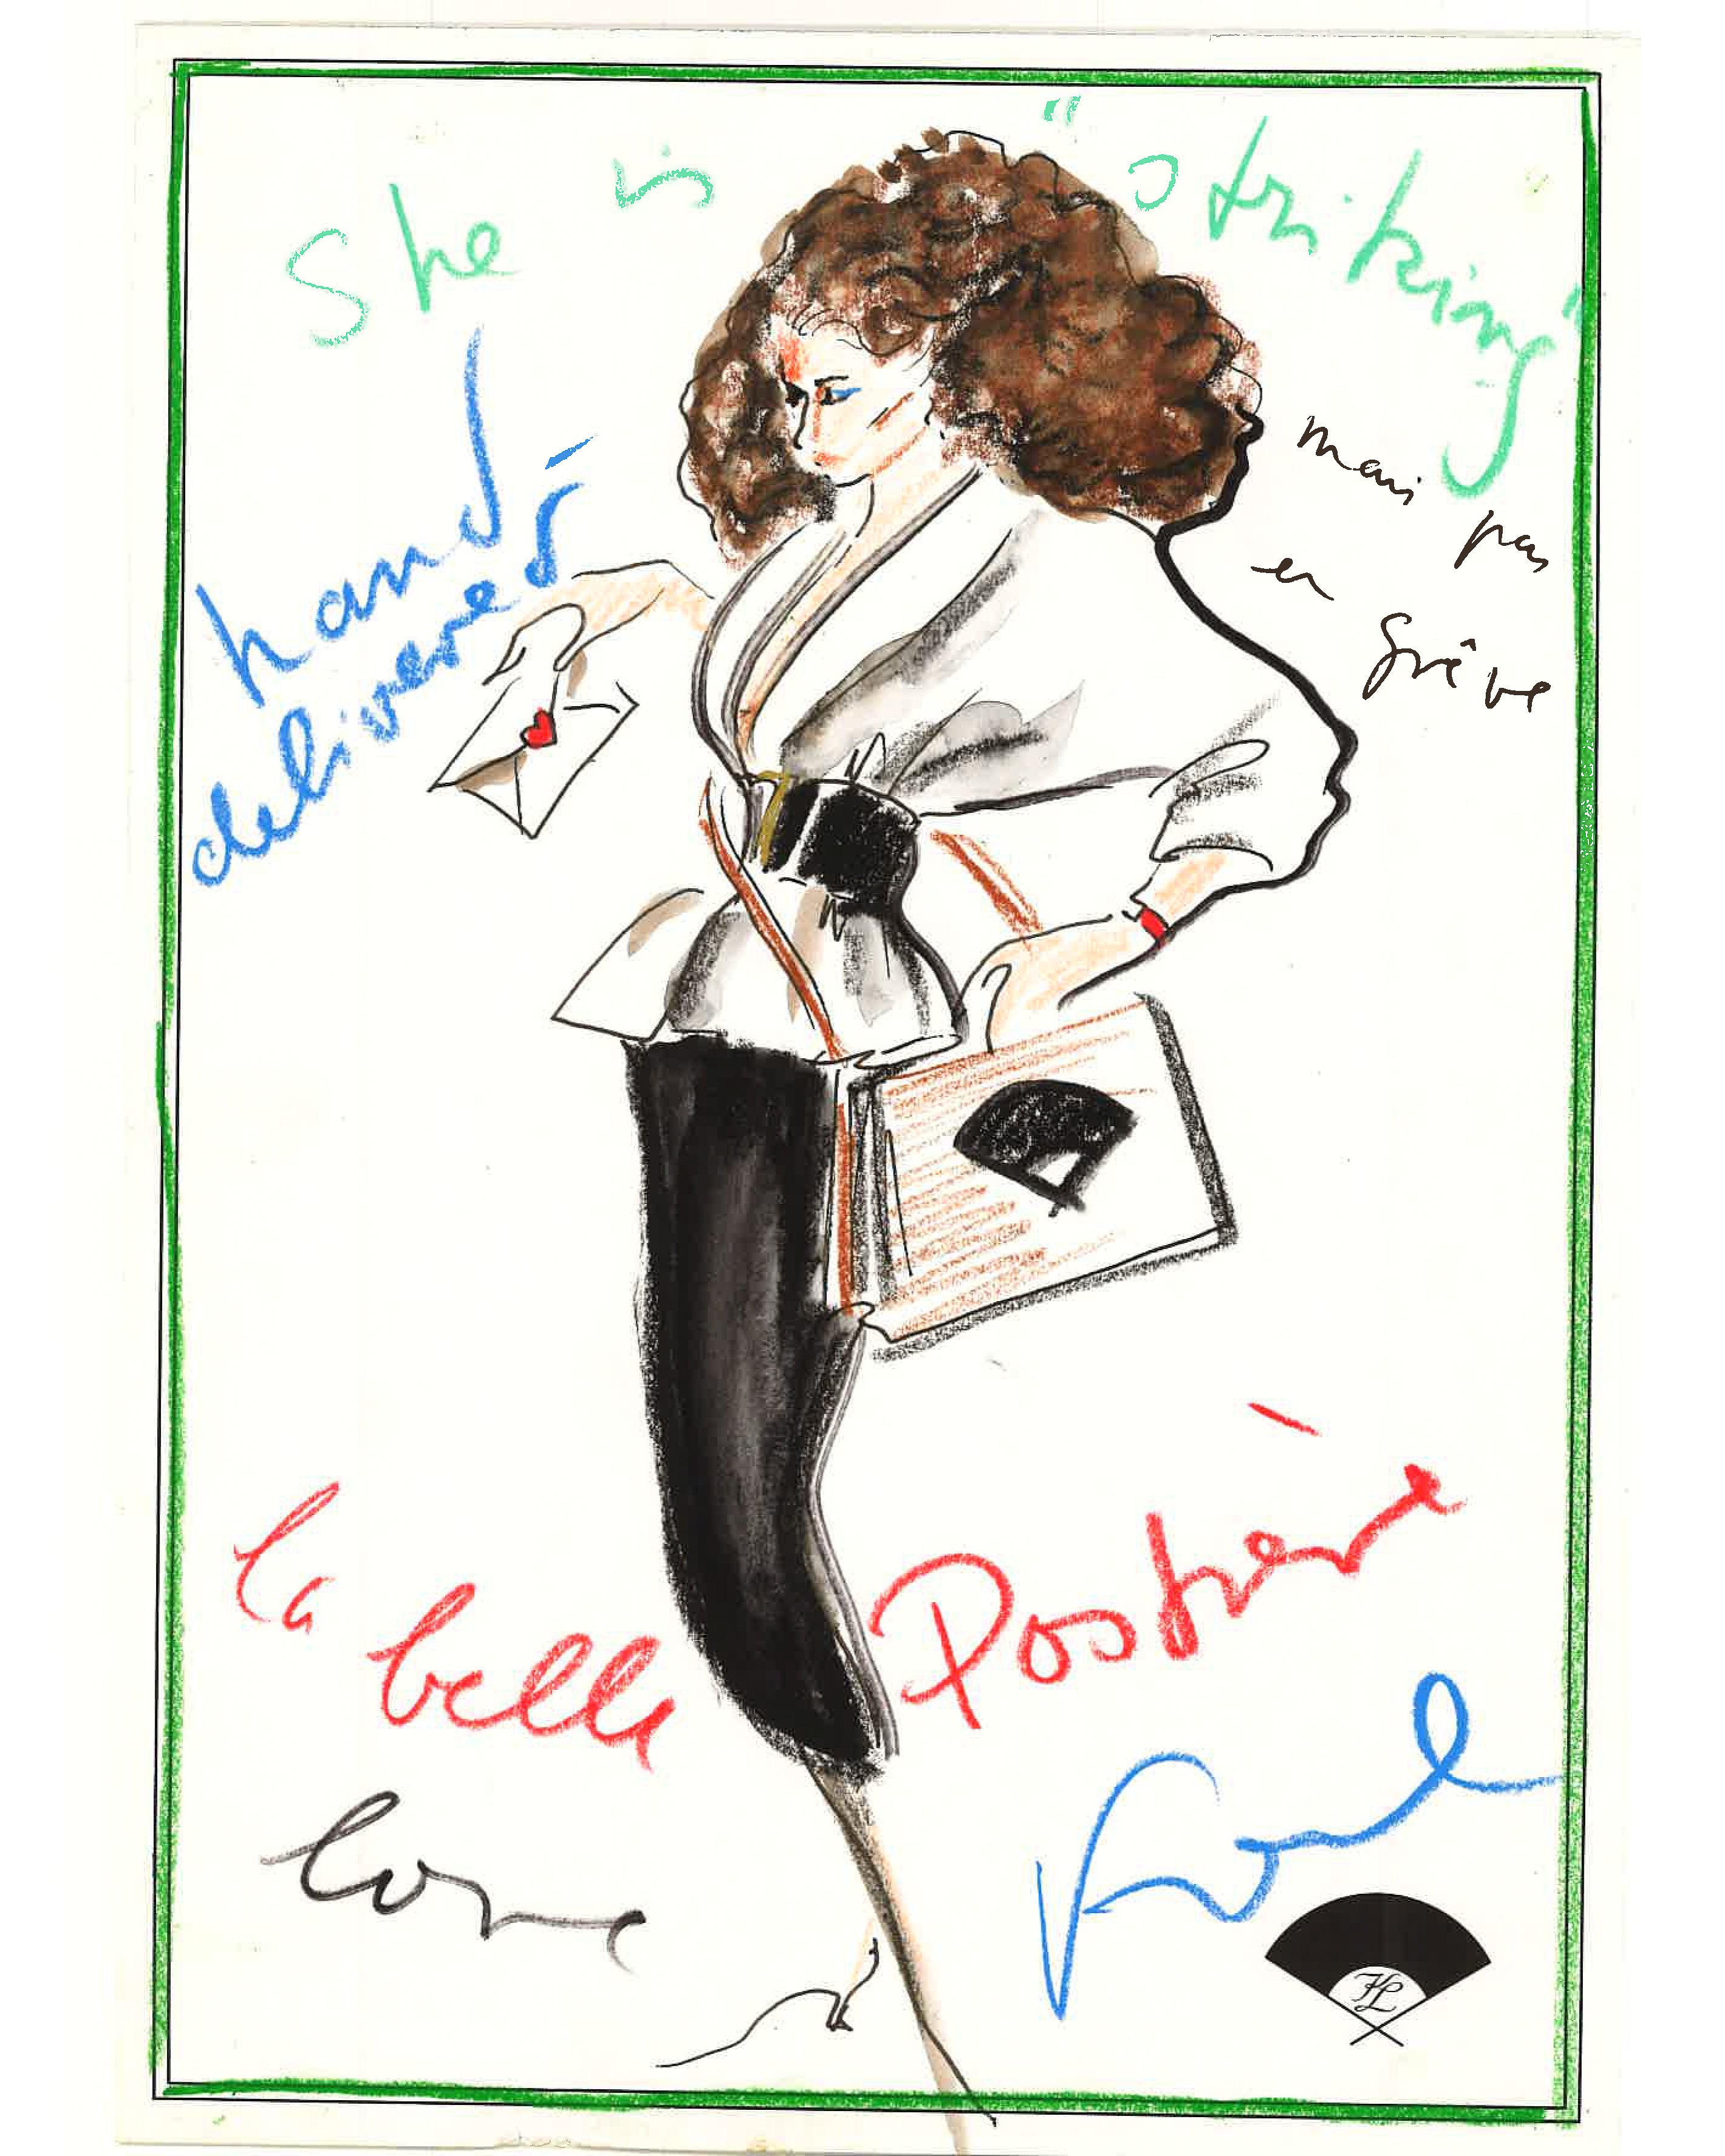 She is "striking"
mais pas
en Grêve
hand
delivered
la belle Postière
love
Karl
KL